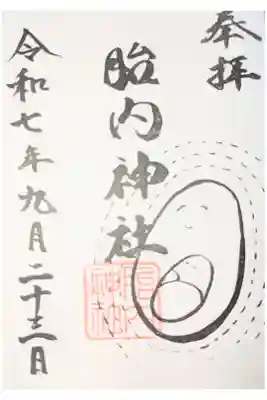 奉拝
胎内神社
令和七年九月二十三日